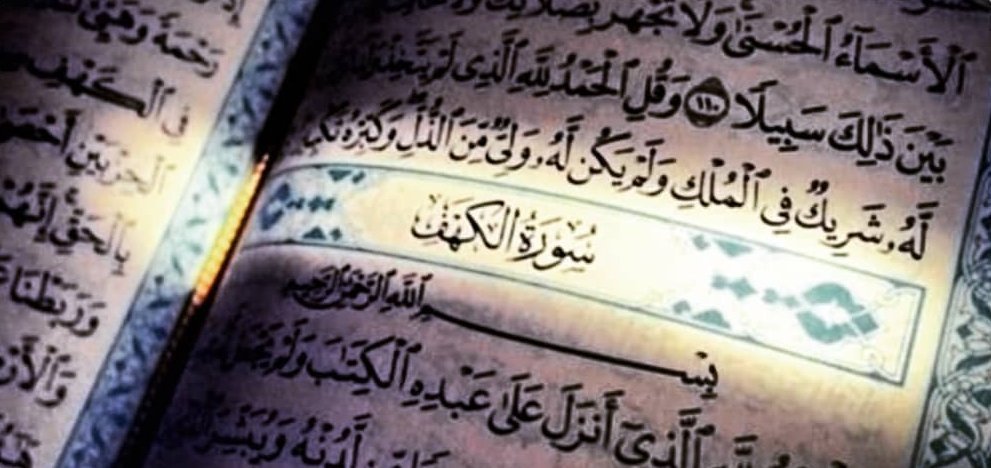 ٱلْأَسْمَآءُ ٱلْحُسْنَىٰ وَلَا تَجْهَرْ بِصَلَاتِكَ
بَيْنَ ذَٰلِكَ سَبِيلًا ١١٠ وَقُلِ ٱلْحَمْدُ لِلَّهِ ٱلَّذِى لَمْ يَتَّخِذْ
لَّهُۥ شَرِيكٌ فِى ٱلْمُلْكِ وَلَمْ يَكُن لَّهُۥ وَلِىٌّ مِّنَ ٱلذُّلِّ وَكَبِّرْهُ
سُورَةُ الكَهْفِ
بِسْمِ ٱللَّهِ ٱلرَّحْمَٰنِ ٱلرَّحِيمِ
ٱلَّذِىٓ أَنزَلَ عَلَىٰ عَبْدِهِ ٱلْكِتَٰبَ وَلَمْ يَجْعَل
لَّدُنْهُ وَيُبَشِّرَ
رَحْمَةً وَهَيِّئْ
فِى ٱلْكَهْفِ
ٱلْحِزْبَيْنِ
بِٱلْحَقِّ إِنَّهُمْ
وَرَبَطْنَا